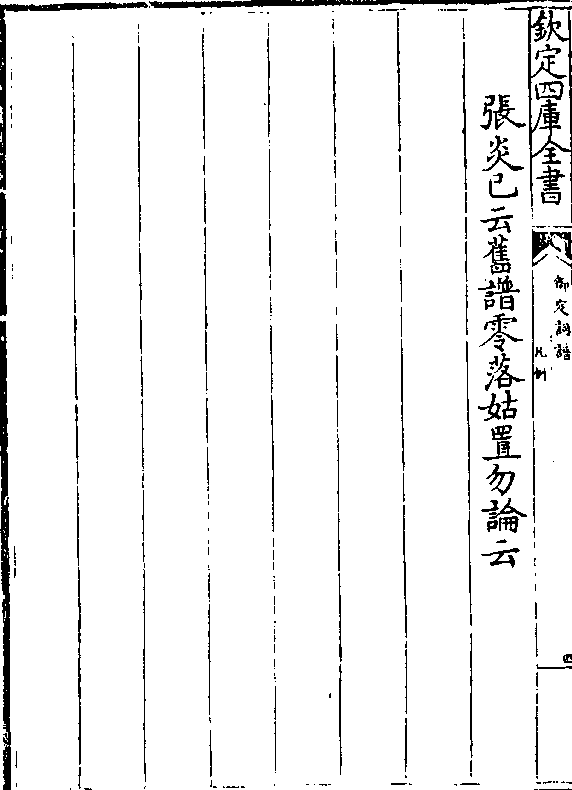 欽定四庫全書
御定詞譜
凡例
四
張炎已云舊譜零落姑置勿論云